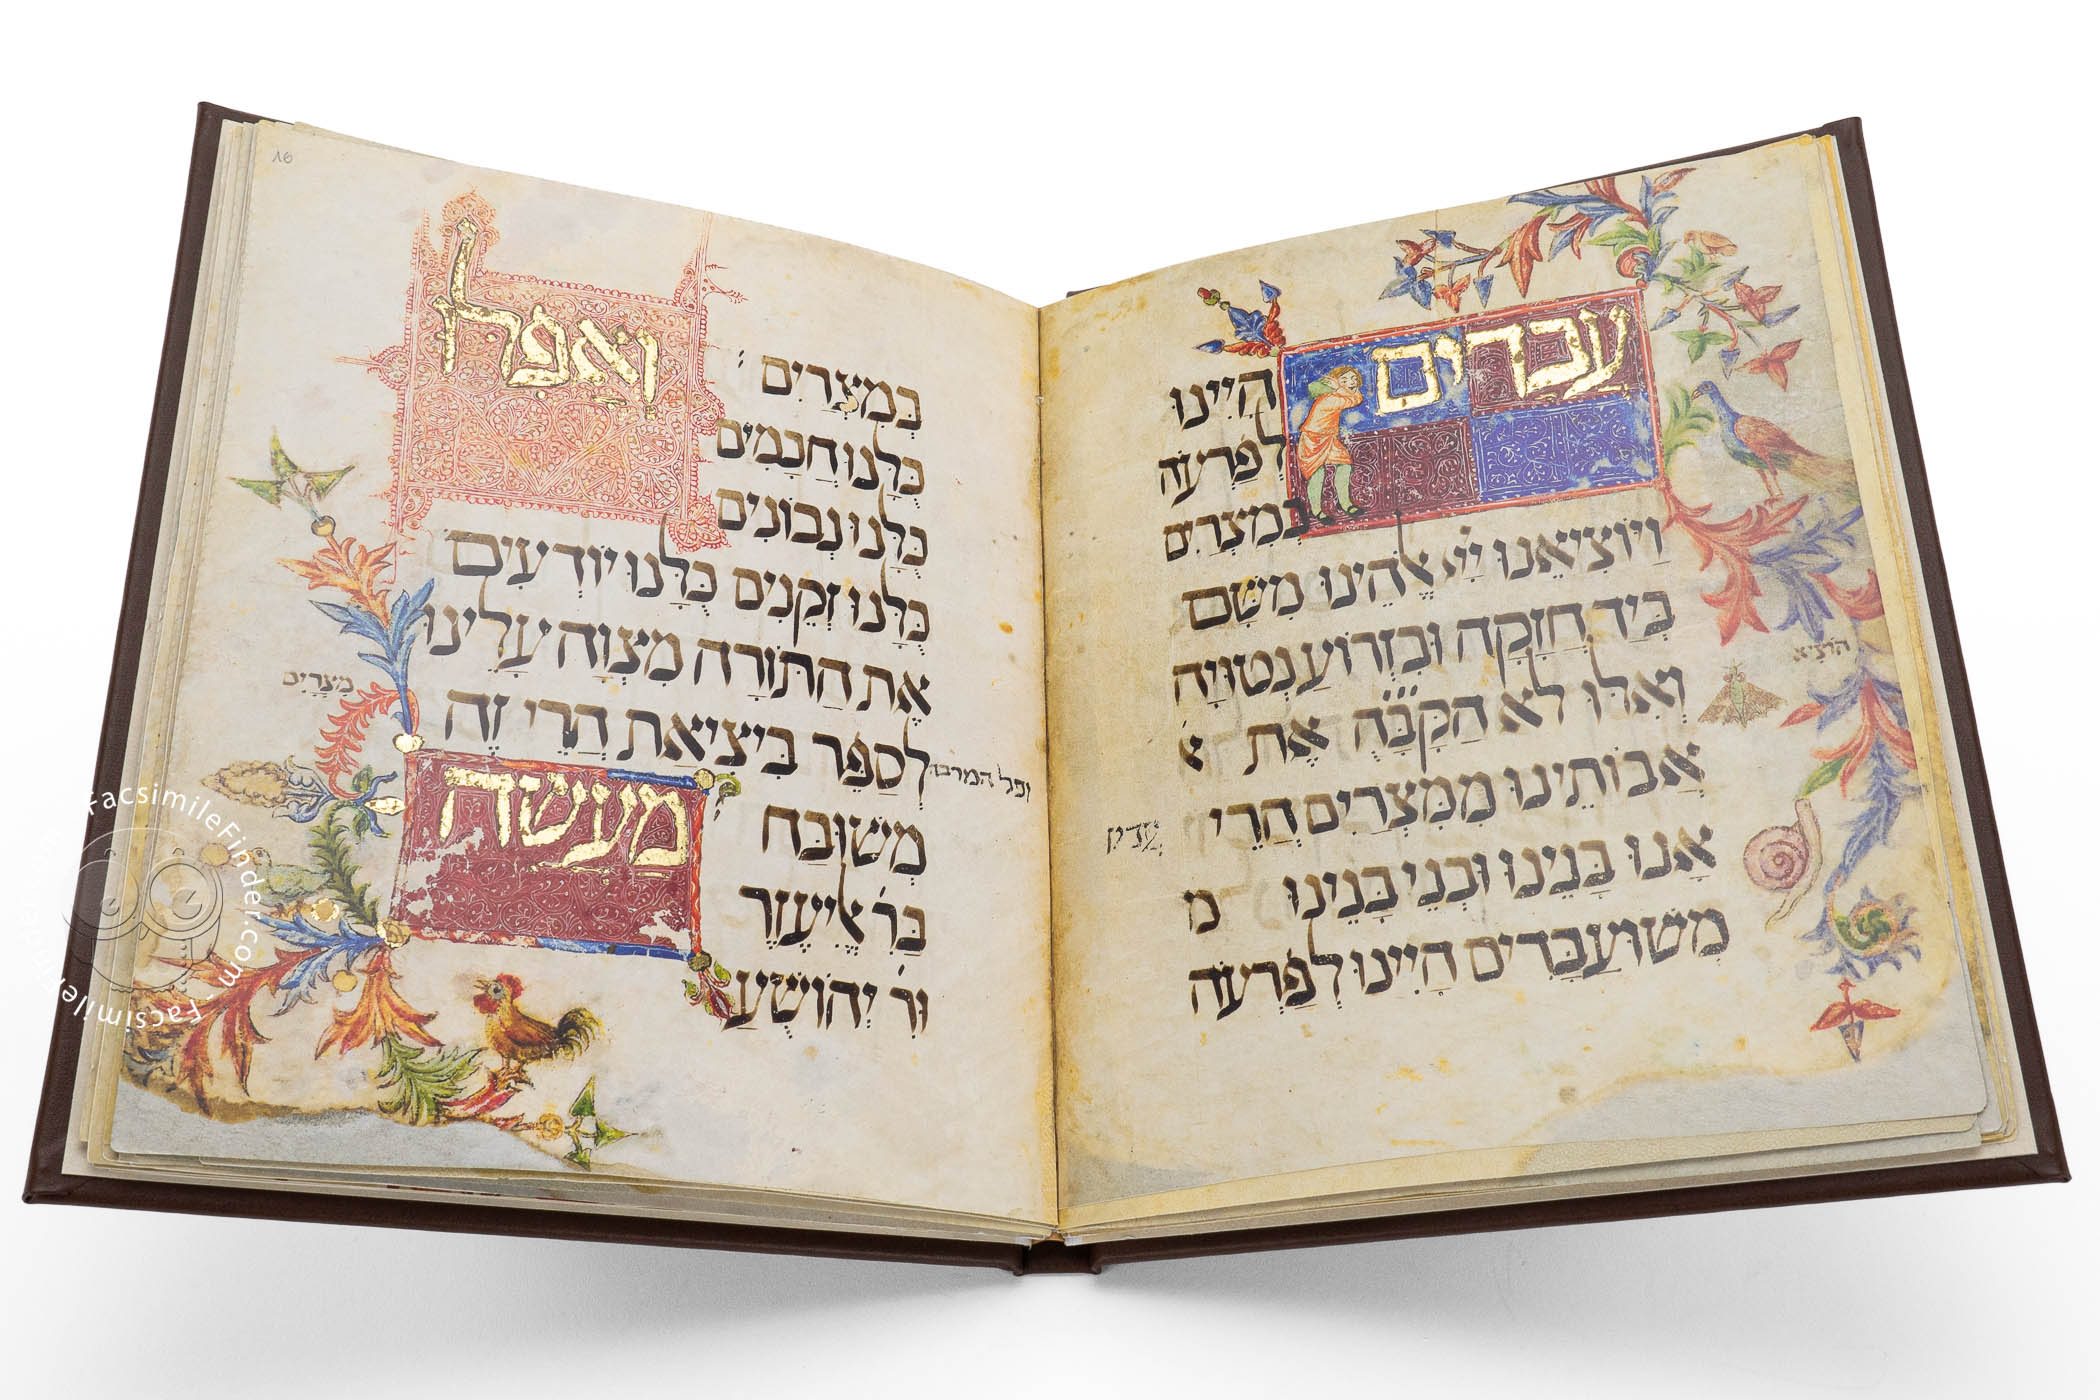 עבדים
היינו
לפרעה
במצרים
וַיּוֹצִיאֵנוּ יְיָ אֱלֹהֵינוּ מִשָּׁם
בְּיָד חֲזָקָה וּבִזְרוֹעַ נְטוּיָה
וְאִלּוּ לֹא הַקָּבָּ֗ה֗ אֶת א
הוֹצִיא
אֲבוֹתֵינוּ מִמִּצְרַיִם הֲרֵי
עֲדַיִן
אָנוּ בָּנֵינוּ וּבְנֵי בָנֵינוּ מ
מְשׁוּעְבָּדִים הָיִינוּ לְפַרְעֹה
16
בְּמִצְרַיִם
וַאֲפִלּ
כֻּלָּנוּ חֲכָמִים
כֻּלָּנוּ נְבוֹנִים
כֻּלָּנוּ זְקֵנִים כֻּלָּנוּ יוֹדְעִים
אֶת הַתּוֹרָה מִצְוָה עָלֵינוּ
לְסַפֵּר בִּיצִיאַת הֲרֵי זֶה
מִצְרַיִם
וכל המרבה
מַעֲשֶׂה
מְשׁוּבַּח
בְּר֗ אֱלִיעֶזֶר
וְר֗ יְהוֹשֻׁעַ
FacsimileFinder.com · Facsimile